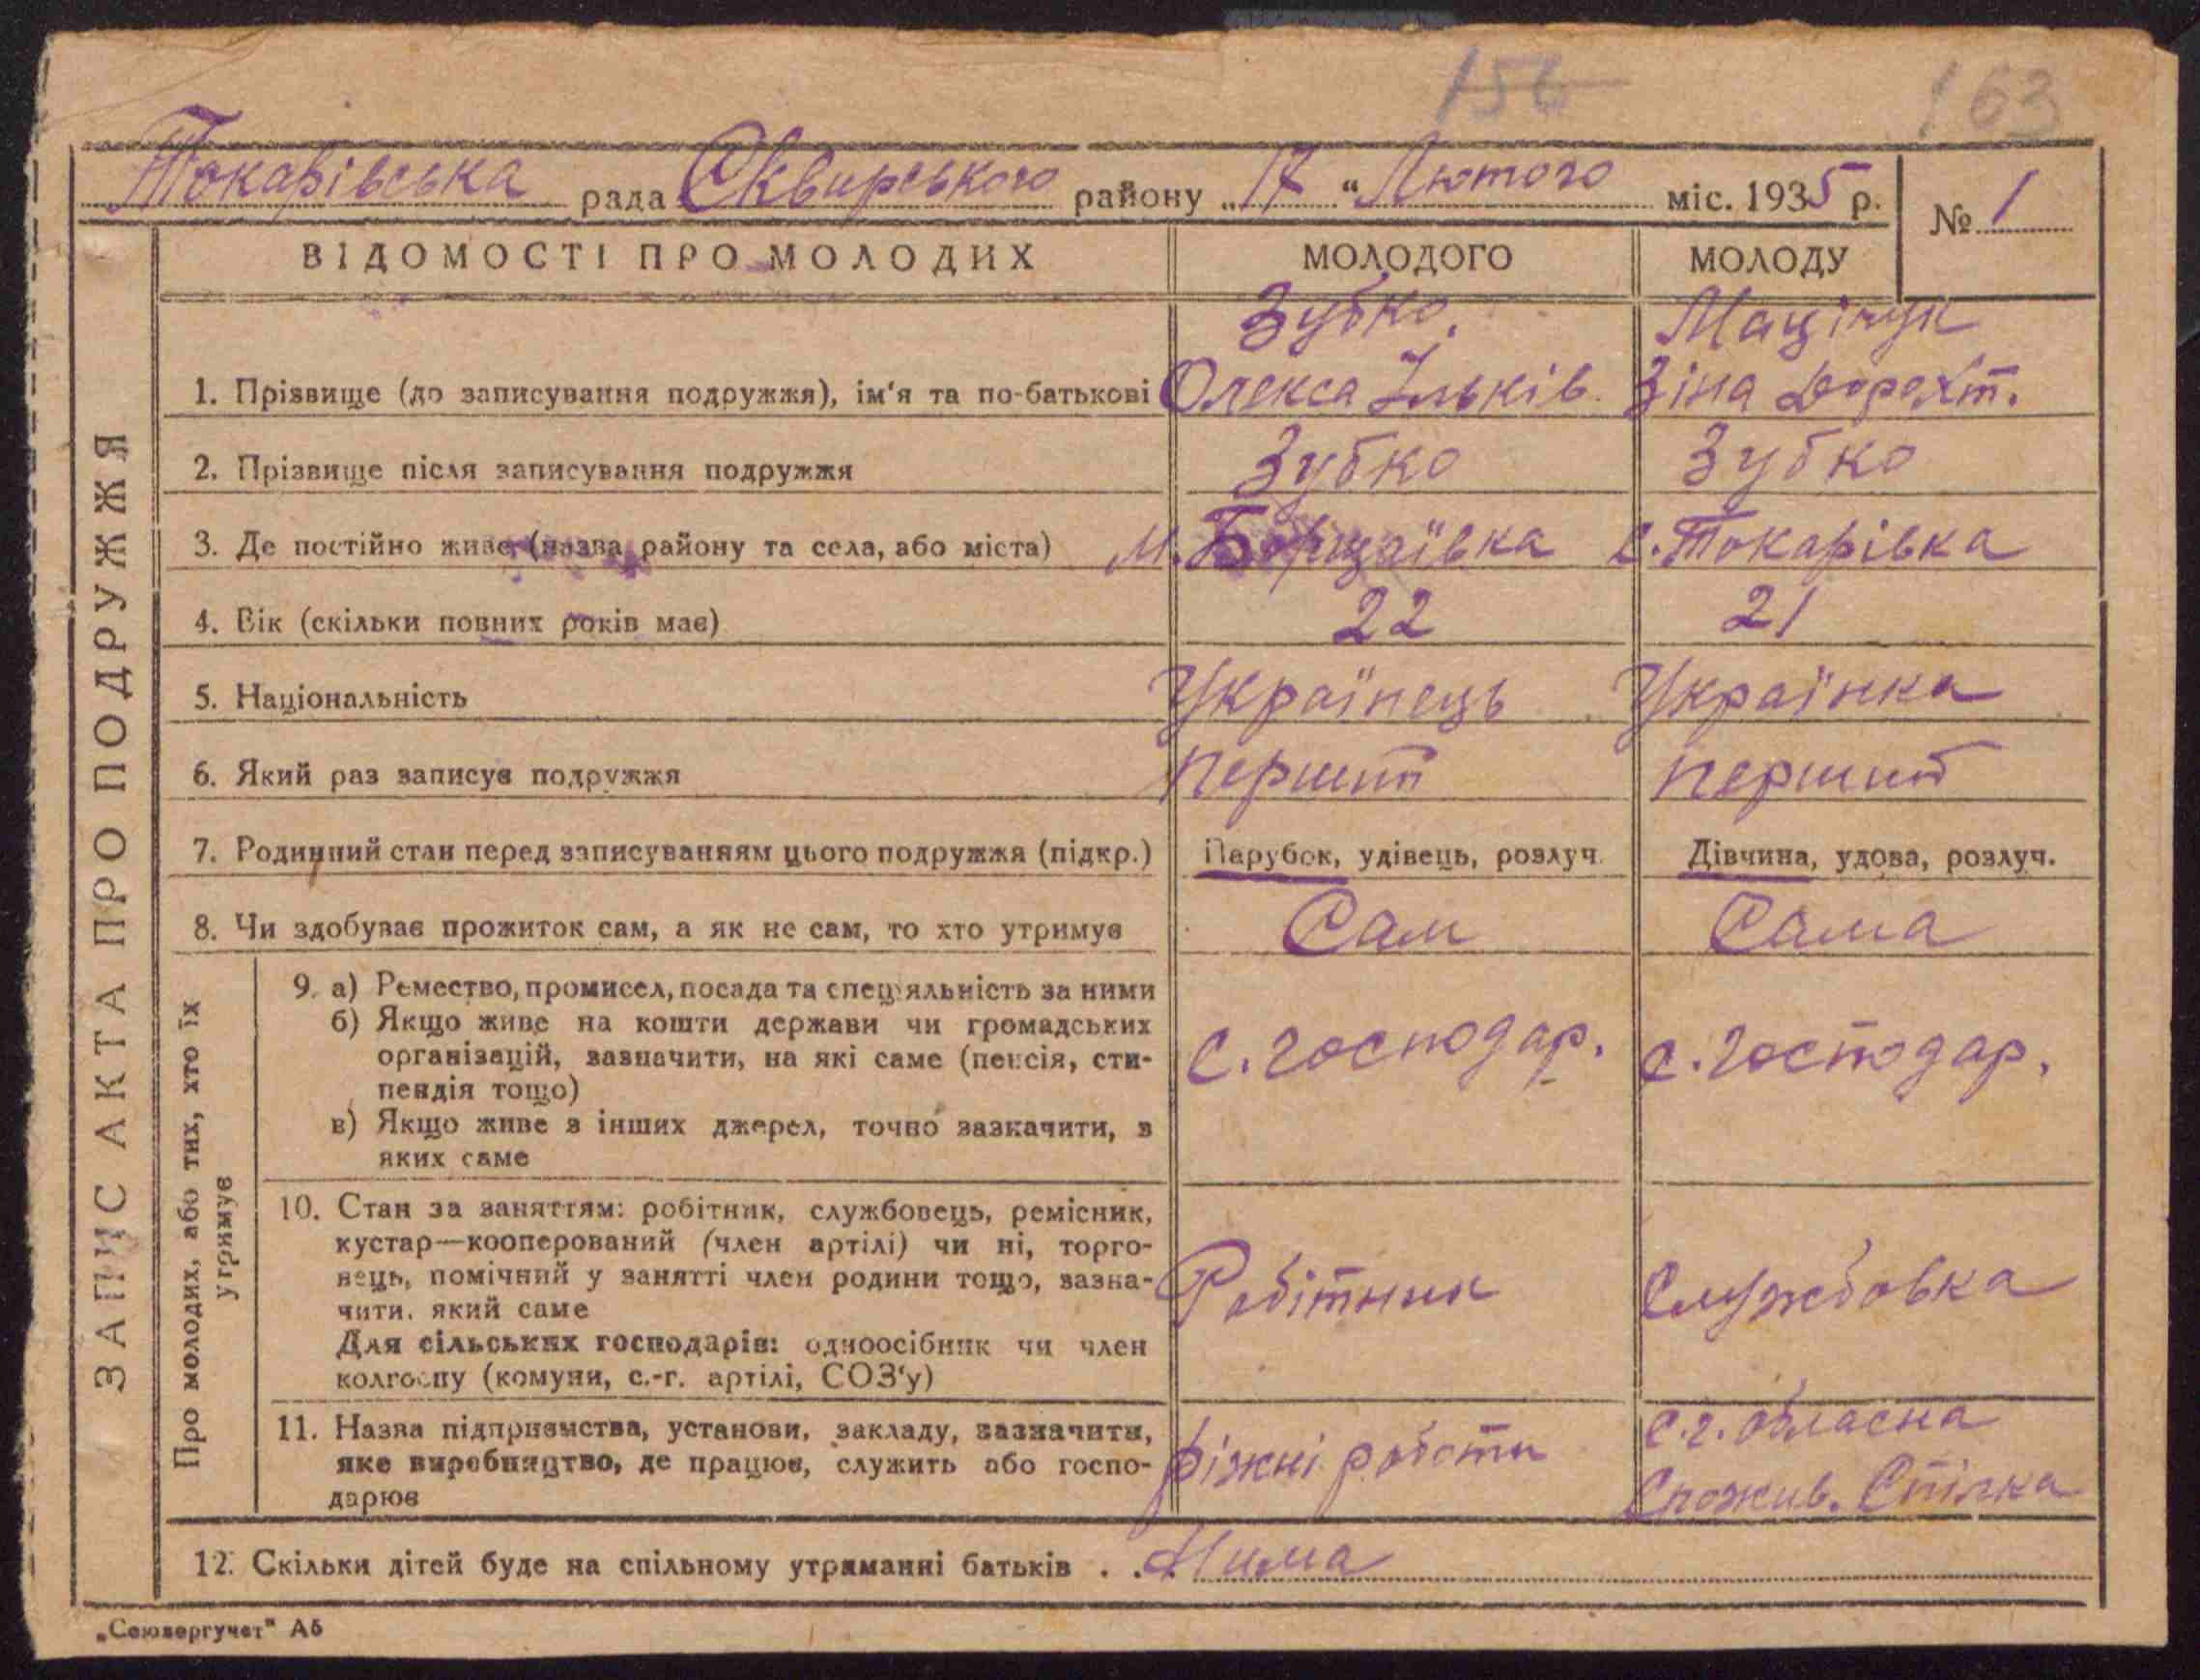 156
163
Токарівська рада Сквирського району „17“ Лютого міс. 1935 р.
№ 1
ВІДОМОСТІ ПРО МОЛОДИХ МОЛОДОГО МОЛОДУ
Зубко. Мацінук
1. Прізвище (до записування подружжя), ім'я та по-батькові Олекса Ільків. Зіна
2. Прізвище після записування подружжя Зубко Зубко
3. Де постійно живе (назва району та села, або міста) м. Борщаївка с. Токарівка
4. Вік (скільки повних років має) 22 21
5. Національність Українець Українка
6. Який раз записує подружжя перший перший
7. Родинний стан перед записуванням цього подружжя (підкр.) Парубок, удівець, розлуч. Дівчина, удова, розлуч.
8. Чи здобуває прожиток сам, а як не сам, то хто утримує Сам Сама
ЗАПИС АКТА ПРО ПОДРУЖЖЯ
Про молодих, або тих, хто їх
утримує
9. а) Ремество, промисел, посада та спеціяльність за ними
б) Якщо живе на кошти держави чи громадських
організацій, зазначити, на які саме (пенсія, сти-
пендія тощо)
в) Якщо живе з інших джерел, точно зазначити, з
яких саме
с. господар. с. господар.
10. Стан за заняттям: робітник, службовець, ремісник,
кустар—кооперований (член артілі) чи ні, торго-
вець, помічний у занятті член родини тощо, зазна-
чити, який саме
Для сільських господарів: одноосібник чи член
колгоспу (комуни, с.-г. артілі, СОЗ'у)
Робітник Службовка
11. Назва підприємства, установи, закладу, зазначити,
яке виробництво, де працює, служить або госпо-
дарює
ріжні роботи с.г. обласна
Спожив. Спілка
12. Скільки дітей буде на спільному утриманні батьків . . Нима
„Союзоргучет" А6